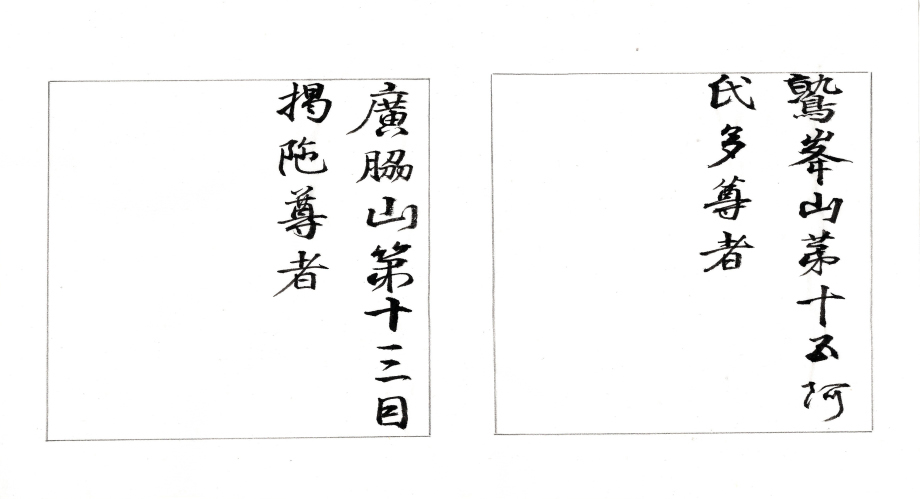 鷲峯山苐十五阿
氏多尊者
廣脇山第十三因
揭陁尊者